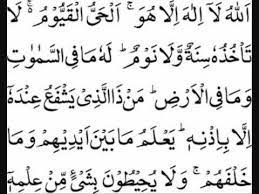 اَللّٰهُ لَاۤ اِلٰهَ اِلَّا هُوَ ۚ اَلْحَیُّ الْقَیُّوْمُ ۚ لَا
تَاْخُذُهٗ سِنَةٌ وَّلَا نَوْمٌ ؕ لَهٗ مَا فِی السَّمٰوٰتِ
وَمَا فِی الْاَرْضِ ؕ مَنْ ذَا الَّذِیْ یَشْفَعُ عِنْدَهٗۤ
اِلَّا بِاِذْنِهٖ ؕ یَعْلَمُ مَا بَیْنَ اَیْدِیْهِمْ وَمَا
خَلْفَهُمْ ۚ وَلَا یُحِیْطُوْنَ بِشَیْءٍ مِّنْ عِلْمِهٖۤ